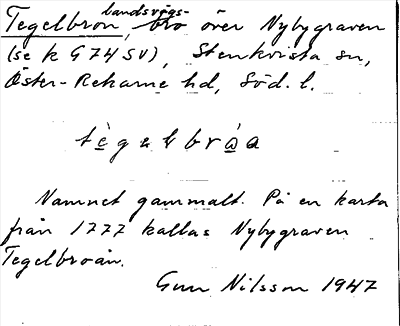 Tegelbron, landsvägs-bro över Nybygraven
(se k 974 SV), Stenkvista sn,
Öster-Rekarne hd, Söd. l.
tègəlbrα̊̀a
Namnet gammalt. På en karta
från 1777 kallas Nybygraven
Tegelbroån.
Gun Nilsson 1947